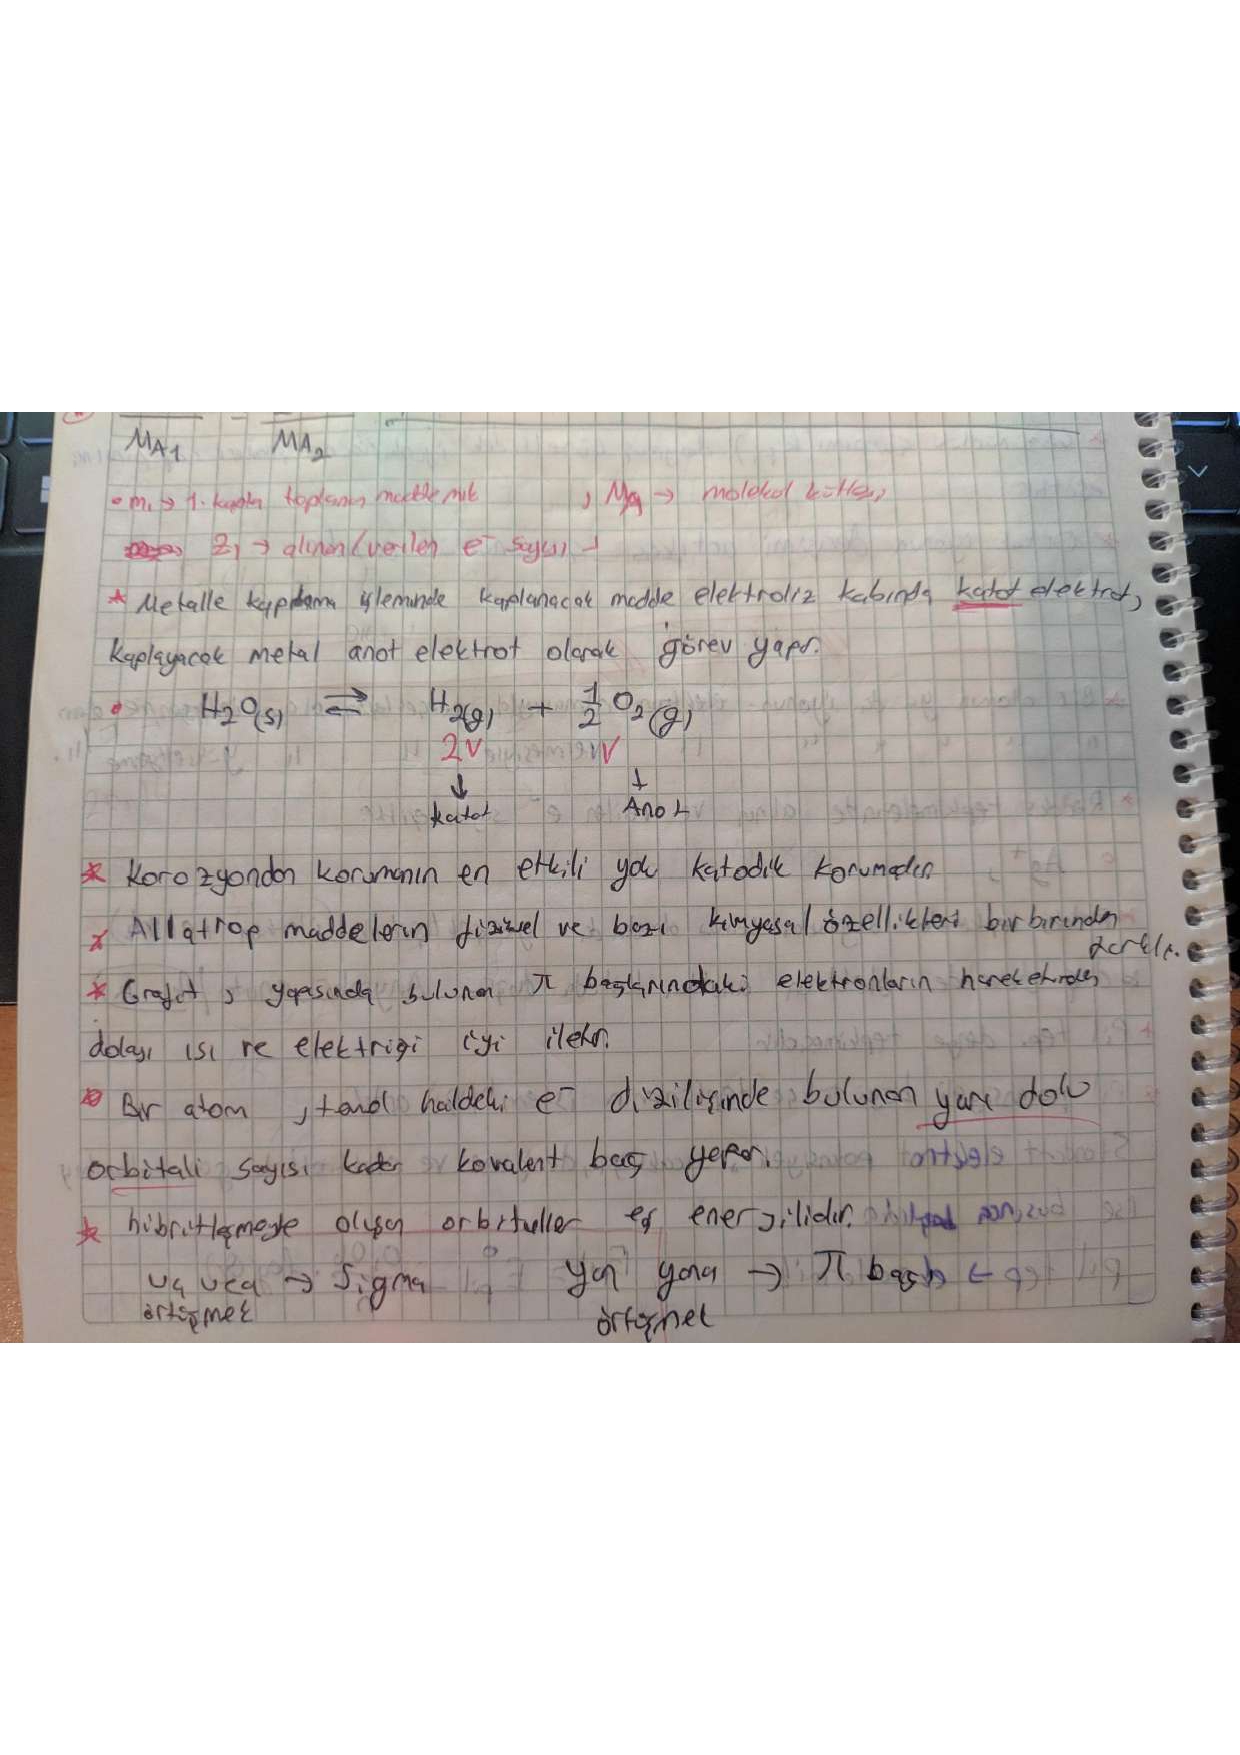 MA1 MA2
• m1 → 1. kapta toplanan madde mik , MA → molekül kütlesi
Z1 → alınan/verilen e- sayısı
* Metalle kaplama işleminde kaplanacak madde elektroliz kabında katot elektrot,
kaplayacak metal anot elektrot olarak görev yapar.
• H2O(s) ⇌ H2(g) + 1/2 O2(g)
2V V
↓ ↓
katot Anot
* Korozyondan korumanın en etkili yolu katodik korumadır
* Allatrop maddelerin fiziksel ve bazı kimyasal özellikleri birbirinden
farklı.
* Grafit, yapısında bulunan π bağlarındaki elektronların hareketinden
dolayı ısı ve elektriği iyi iletir.
Bir atom, temel haldeki e- dizilişinde bulunan yarı dolu
orbitali sayısı kadar kovalent bağ yapar.
* hibritleşmeyle oluşan orbitaller eş enerjilidir.
uç uca → Sigma yan yana → π bağı
örtüşmek örtüşmek